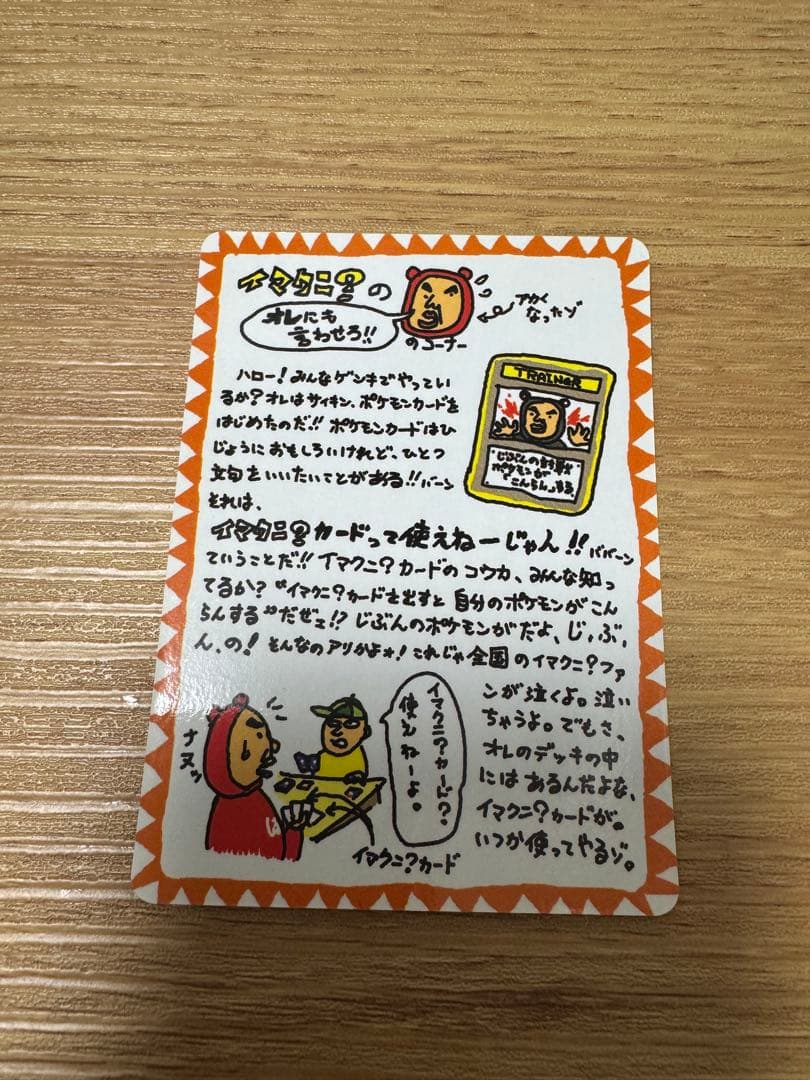 イマクニ?の
オレにも
言わせろ!!
のコーナー
アカく
なったゾ
ハロー!みんなゲンキでやってい
るか?オレはサイキン、ポケモンカードを
はじめたのだ!!ポケモンカードはひ
じょうにおもしろいけれど、ひとつ
文句をいいたいことがある!!バーン
それは、
TRAINER
じぶんの対戦
ポケモンが
「こんらん」する。
イマクニ?カードって使えねーじゃん!!ババーン
ていうことだ!!イマクニ?カードのコウカ、みんな知っ
てるか?“イマクニ?カードを出すと自分のポケモンがこん
らんする”だぜェ!?じぶんのポケモンがだよ、じ,ぶ,
ん,の!そんなのアリかよ☆!これじゃ全国のイマクニ?ファ
ンが泣くよ。泣い
ちゃうよ。でもさ、
オレのデッキの中
にはあるんだよな、
イマクニ?カードが。
いつか使ってやるゾ。
ナヌッ
イマクニ?カード?。
使えねーよ。
イマクニ?カード